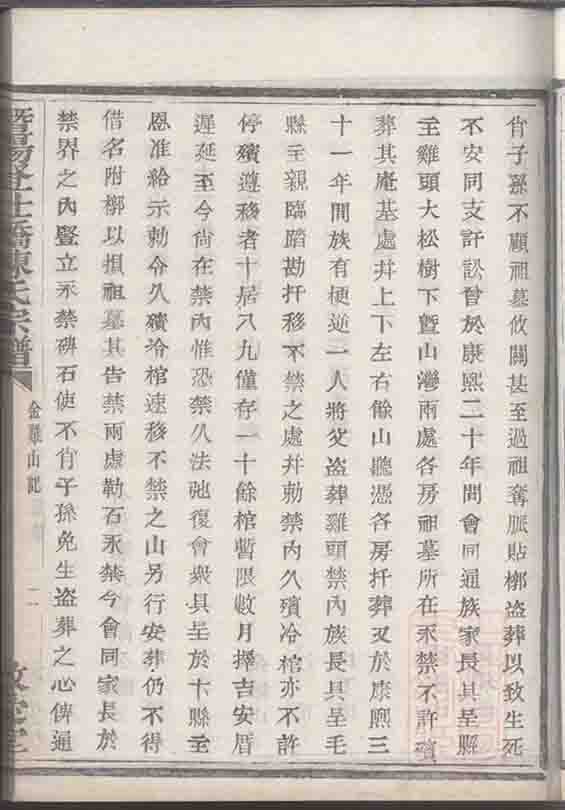 肖子孫不顧祖墓攸關甚至過祖奪脈貼槨盜葬以致生死
不安同支訐訟曾於康熙二十年間會同通族家長具呈縣
主雞頭大松樹下暨山灣兩處各房祖墓所在永禁不許殯
葬其庵基處井上下左右餘山聽憑各房扦葬又於康熙三
十一年間族有梗逆一人將父盜葬雞頭禁內族長具呈毛
縣主親臨踏勘扦移不禁之處幷勅禁內久殯冷棺亦不許
停殯遵移者十居八九僅存一十餘棺暫限數月擇吉安厝
遲延至今尙在禁內惟恐禁久法弛復會衆具呈於卞縣主
恩准給示勅令久殯冷棺速移不禁之山另行安葬仍不得
借名附槨以損祖墓其告禁兩處勒石永禁今會同家長於
禁界之內豎立永禁碑石使不肖子孫免生盜葬之心俾通
暨陽登仕橋陳氏宗譜
金雞山記
二